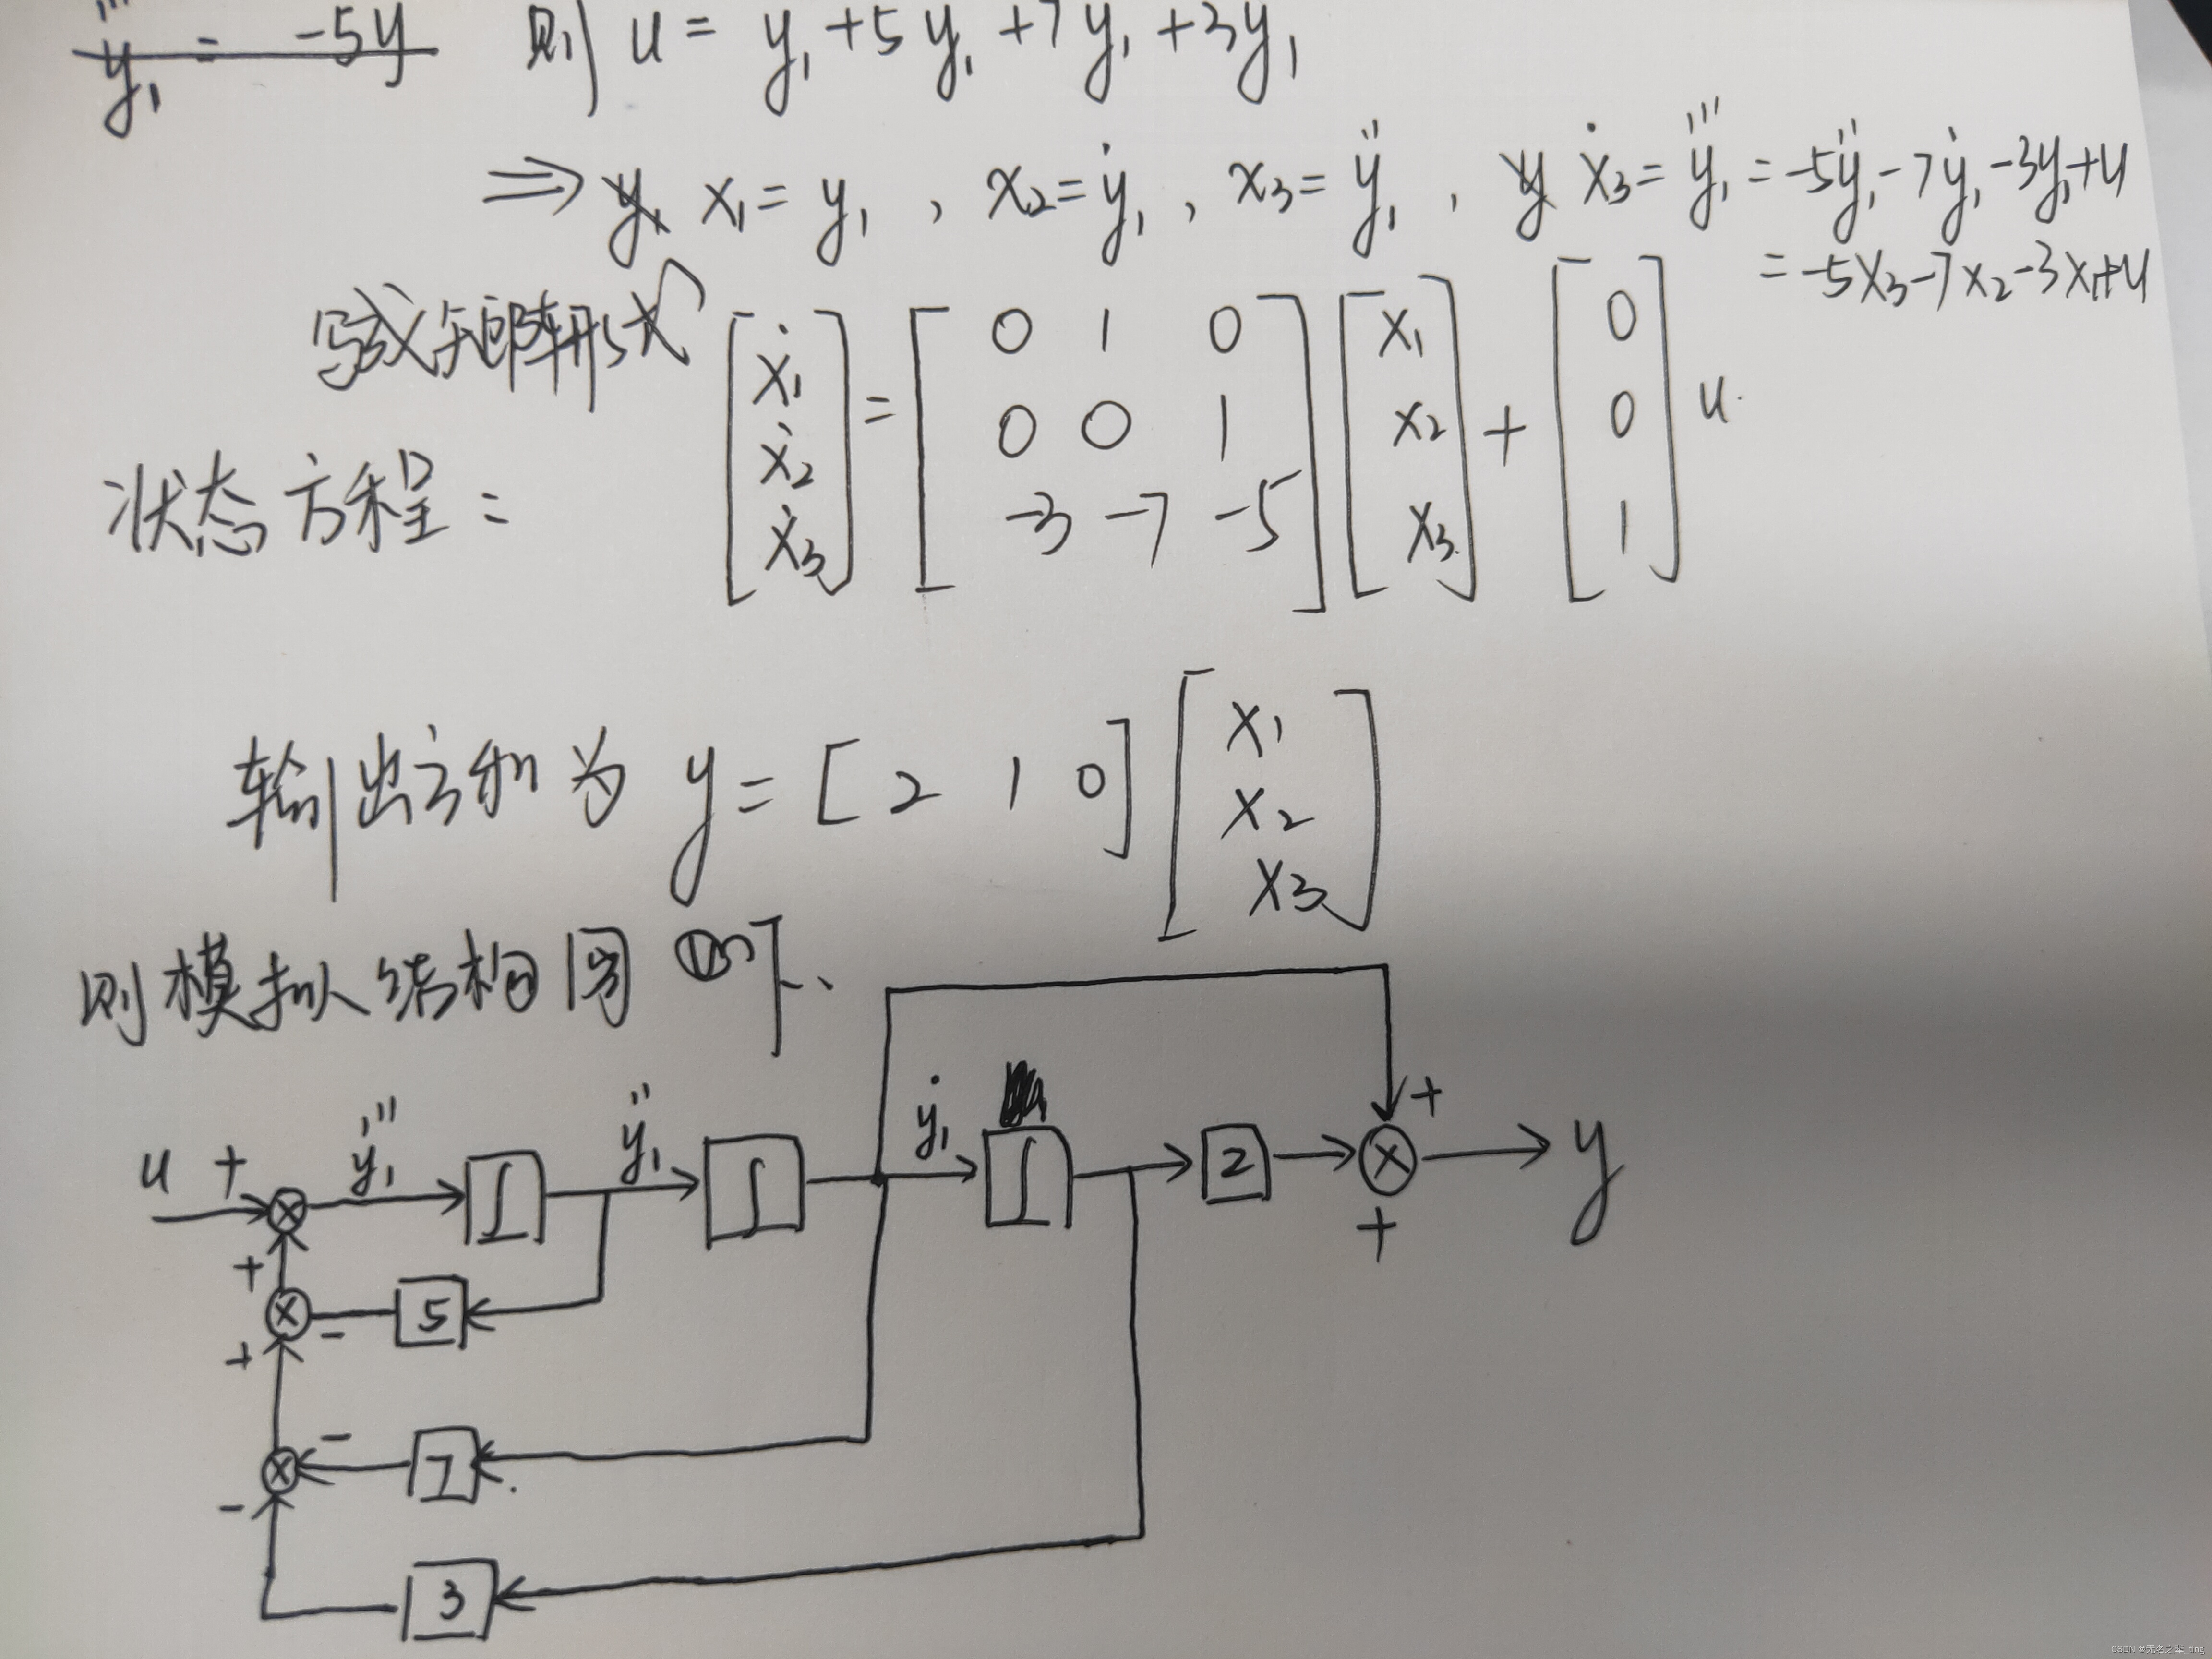 y₁ = -5y 则 u = y₁ + 5y₁ + 7y₁ + 3y₁
⇒ y₁ x₁ = y₁ , x₂ = ẏ₁ , x₃ = ÿ₁ , y ẋ₃ = y⃛₁ = -5ÿ₁ - 7ẏ₁ - 3y₁ + u
= -5x₃ - 7x₂ - 3x₁ + u
写成矩阵形式
状态方程 = [ẋ₁ ẋ₂ ẋ₃] = [0 1 0; 0 0 1; -3 -7 -5] [x₁ x₂ x₃] + [0 0 1] u.
输出方程为 y = [2 1 0] [x₁ x₂ x₃]
则模拟结构图如下、
u + y⃛₁ ∫ ÿ₁ ∫ ẏ₁ ∫ 2 + + y
+ 5 -
+ 7 -
- 3
CSDN @无名之辈_ting